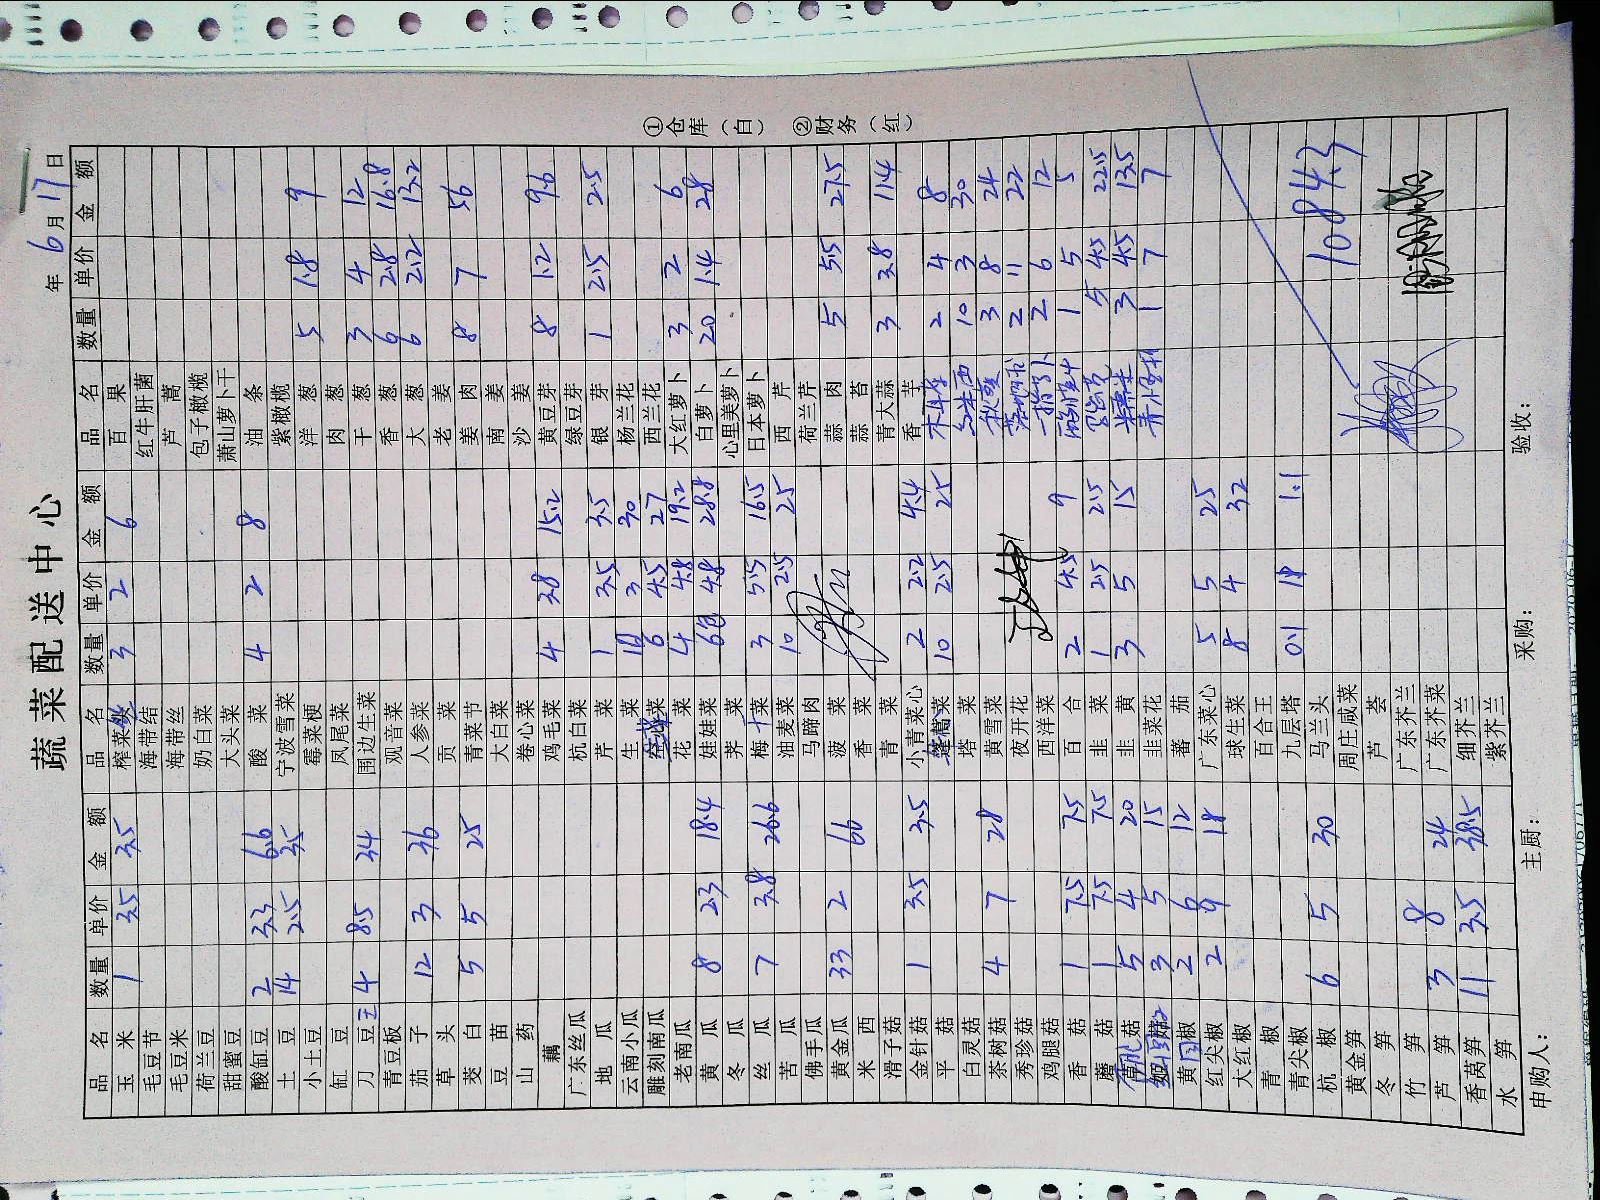 蔬菜配送中心
年 6月17日
品名 数量 单价 金额 品名 数量 单价 金额 品名 数量 单价 金额
玉米 1 3.5 3.5 榨菜丝 3 2 6 百果
毛豆节 海带结 红牛肝菌
毛豆米 海带丝 芦蒿
荷兰豆 奶白菜 包子橄榄
甜蜜豆 大头菜 萧山萝卜干
酸缸豆 2 3.3 6.6 酸菜 4 2 8 油条
土豆 14 2.5 35 宁波雪菜 紫橄榄
小土豆 霉菜梗 洋葱 5 1.8 9
缸豆 凤尾菜 肉葱
刀豆 4 8.5 34 围边生菜 干葱 3 4 12
青豆板 观音菜 香葱 6 2.8 16.8
茄子 12 3 36 人参菜 大葱 6 2.2 13.2
草头 贡菜 老姜
茭白 5 5 25 青菜节 姜肉 8 7 56
豆苗 大白菜 南姜
山药 卷心菜 沙姜
藕 鸡毛菜 4 3.8 15.2 黄豆芽 8 1.2 9.6
广东丝瓜 杭白菜 绿豆芽
地瓜 芹菜 1 3.5 3.5 银芽 1 2.5 2.5
云南小瓜 生菜 10 3 30 杨兰花
雕刻南瓜 空心菜 6 4.5 27 西兰花
老南瓜 花菜 4 4.8 19.2 大红萝卜 3 2 6
黄瓜 8 2.3 18.4 娃娃菜 6包 4.8 28.8 白萝卜 20 1.4 28
冬瓜 荠菜 心里美萝卜
丝瓜 7 3.8 26.6 梅干菜 3 5.5 16.5 日本萝卜
苦瓜 油麦菜 10 2.5 25 西芹
佛手瓜 马蹄肉 荷兰芹
黄金瓜 33 2 66 菠菜 蒜肉 5 5.5 27.5
米西 香菜 蒜苔
滑子菇 青菜 青大蒜 3 3.8 11.4
金针菇 1 3.5 3.5 小青菜心 2 2.2 4.4 香芋
平菇 蓬蒿菜 10 2.5 25 木耳菜 2 4 8
白灵菇 塔菜 10 3 30
茶树菇 4 7 28 黄雪菜 秋葵 3 8 24
秀珍菇 夜开花 2 11 22
鸡腿菇 西洋菜 2 6 12
香菇 1 7.5 7.5 百合 2 4.5 9 1 5 5
蘑菇 1 7.5 7.5 韭菜 1 2.5 2.5 5 4.5 22.5
菇 5 4 20 韭黄 3 5 15 3 4.5 13.5
3 5 15 韭菜花 1 7 7
黄椒 2 6 12 蕃茄
红尖椒 2 9 18 广东菜心 5 5 25
大红椒 球生菜 8 4 32
青椒 百合王
青尖椒 九层塔 0.1 11 1.1
杭椒 6 5 30 马兰头 1084.3
黄金笋 周庄咸菜
冬笋 芦荟
竹笋 广东芥兰
芦笋 3 8 24 广东芥菜
香莴笋 11 3.5 38.5 细芥兰
水笋 紫芥兰
申购人： 主厨： 采购： 验收：
①仓库（白） ②财务（红）